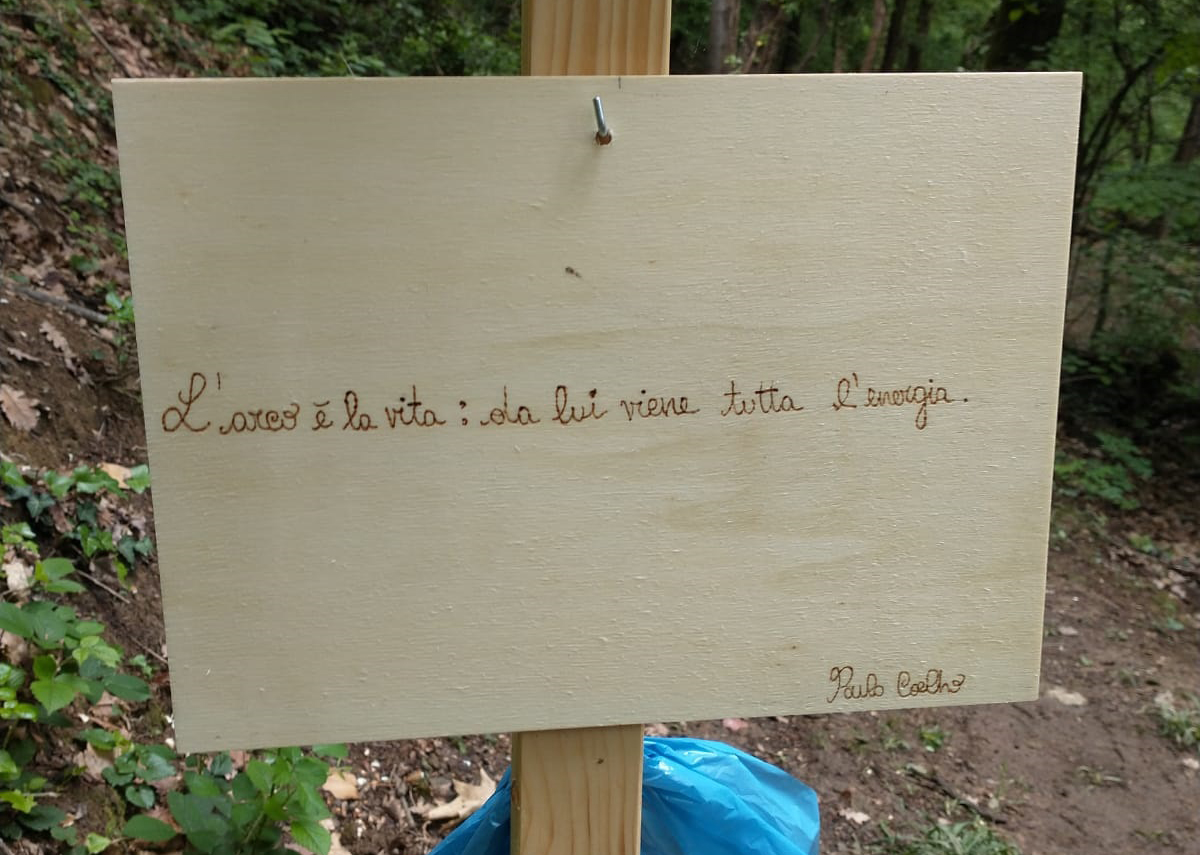 L'arco è la vita: da lui viene tutta l'energia.
Paulo Coelho